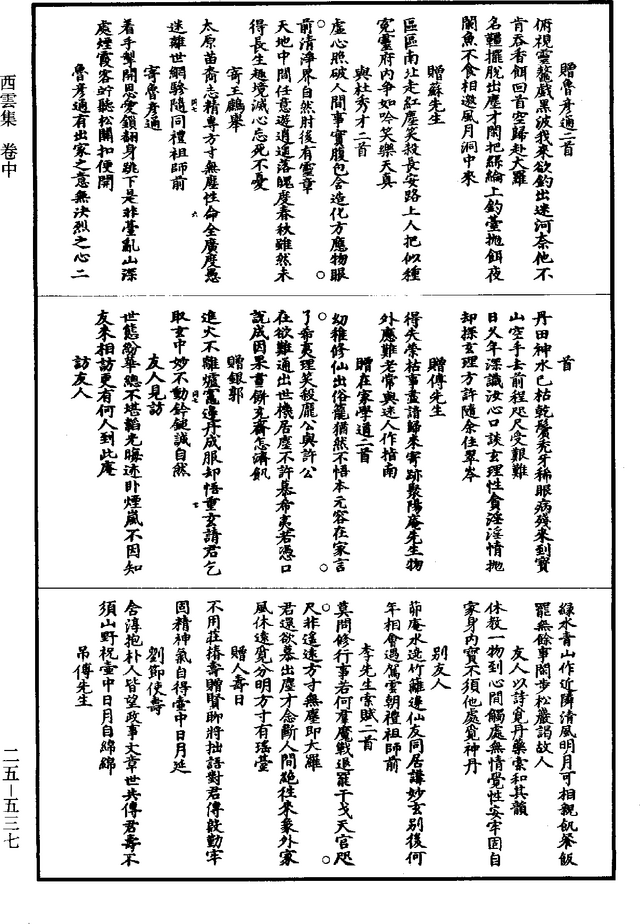 西雲集　卷中
贈魯彥通二首
俯視雲鰲戲黑波我來欲釣出迷河奈他不
肯吞香餌回首空歸赴大羅
名韁擺脫出塵才閑把絲綸上釣臺拋餌夜
闌魚不食相邀風月洞中來
贈蘇先生
區區南北走紅塵笑殺長安路上人把似種
冤靈府內爭如吟笑樂天真
與杜秀才二首
虛心照破人間事實腹包含造化方應物眼
前清淨界自然肘後有靈章
天地中間任意遊逍遙落魄度春秋雖然未
得長生趣境滅心忘死不憂
寄王鵬舉
太原苗裔志精專方寸無塵性命全廣度愚
迷離世網驂隨同禮祖師前
寄魯彥通
着手掣開恩愛鎖翻身跳下是非臺亂山深
處煙霞客竚聽松關扣便開
魯彥通有出家之意無決烈之心二
首
丹田神水已枯乾鬢禿牙稀眼病殘來到寶
山空手去前程咫尺受艱難
日久年深識汝心口談玄理性貪淫淫情拋
却探玄理方許隨余住翠岑
贈傅先生
得失榮枯事盡諳歸來寄跡聚陽庵先生物
外應難老常與迷人作指南
贈在家學道二首
幼稚修仙出俗籠猶然不悟本元容在家言
了希夷理笑殺龐公與許公
在欲難通出世機居塵不許慕希夷若憑口
說成因果畫餅充齋怎濟飢
贈銀郭
進火不離爐竈邊丹成服却悟重玄請君乞
取玄中妙不動鈐鎚識自然
友人見訪
世態紛華總不堪韜光晦迹臥煙嵐不因知
友來相訪更有何人到此庵
訪友人
綠水青山作近隣清風明月可相親飢餐飯
罷無餘事閑步松巖謁故人
友人以詩覓丹藥索和其韻
休教一物到心間觸處無情覺性安牢固自
家身內寶不須他處覓神丹
別友人
茆庵水遶竹籬邊仙友同居講妙玄別後何
年相會遇雲朝禮祖師前
李先生索賦二首
莫問修行事若何羣魔戰退罷干戈天官咫
尺非遙遠方寸無塵即大羅
君還欲慕出塵才念斷人間絕往來象外家
風休遠覓分明方寸有瑤臺
贈人壽日
不用莊椿壽贈賢聊將拙語對君傳敲動牢
固精神氣自得壺中日月延
劉節使壽
含淳抱朴人皆望政事文章世共傳君壽不
須山野祝壺中日月自綿綿
弔傅先生
二五—五三七